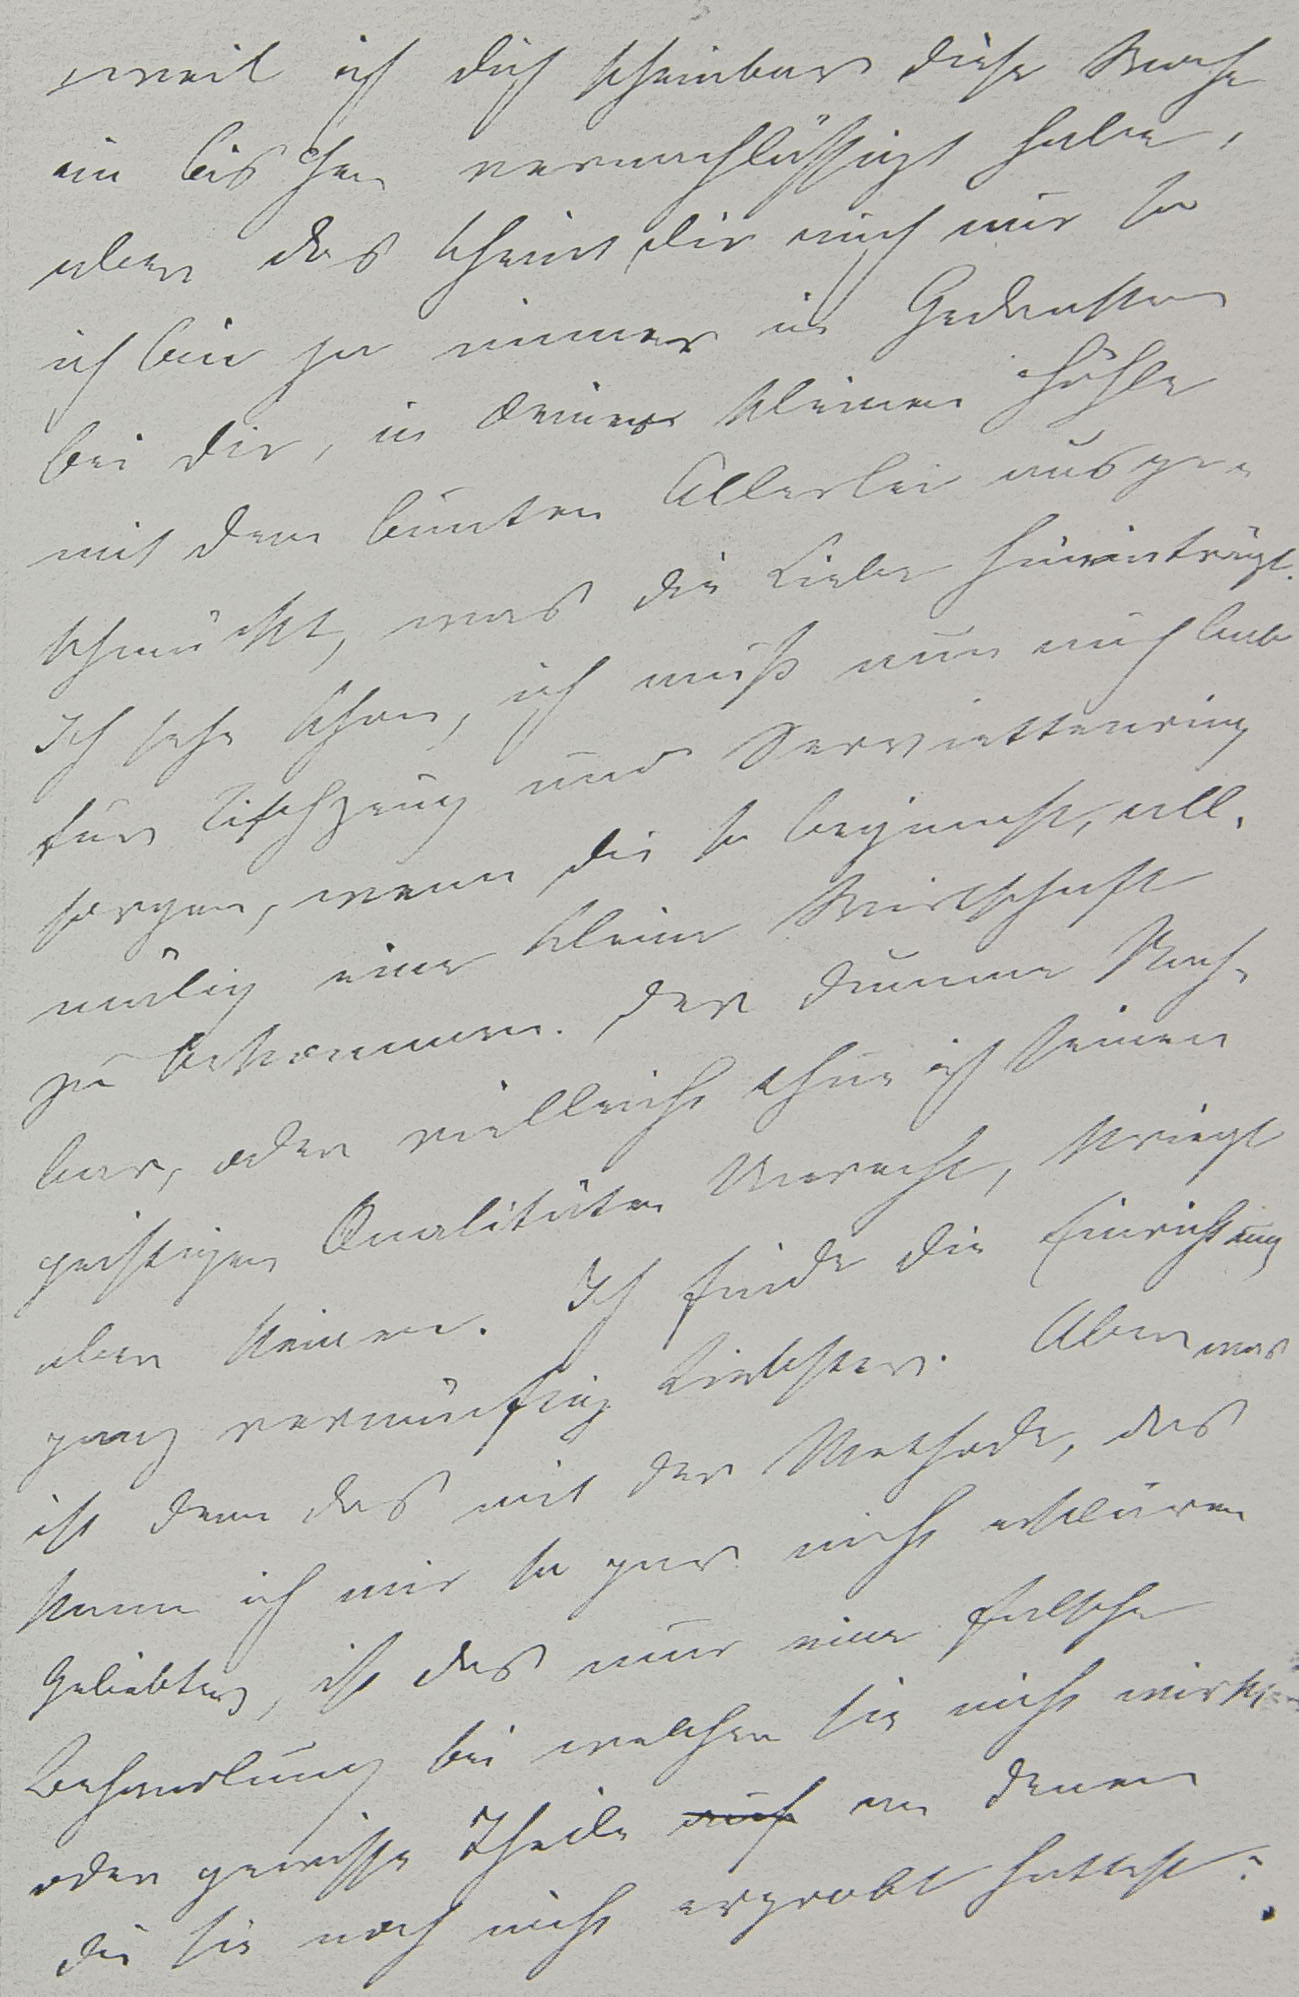 weil ich dich scheinbar diese Woche
ein bischen vernachlässigt habe,
aber das scheint dir auch nur so
ich bin ja immer in Gedanken
bei dir, in deiner kleinen Höhle
mit dem bunten Allerlei ausge-
schmückt, was die Liebe hineinträgt.
Ich sehe schon, ich muß nun auch bald
für Tischzeug und Serviettenring
sorgen, wenn du so beginnst, all-
mälig eine kleine Wirtschaft
zu bekommen. Der dumme Nach-
bar, oder vielleicht thue ich seinen
geistigen Qualitäten Unrecht, kriegt
aber keinen. Ich finde die Einrichtung
ganz vernünftig Liebster. Aber was
ist denn das mit der Methode, das
kann ich mir so gar nicht erklären
Geliebter, ist das nur eine falsche
Behandlung bei welcher sie nicht wirkt
oder gewisse Theile auf an denen
du sie noch nicht erprobt hattest?